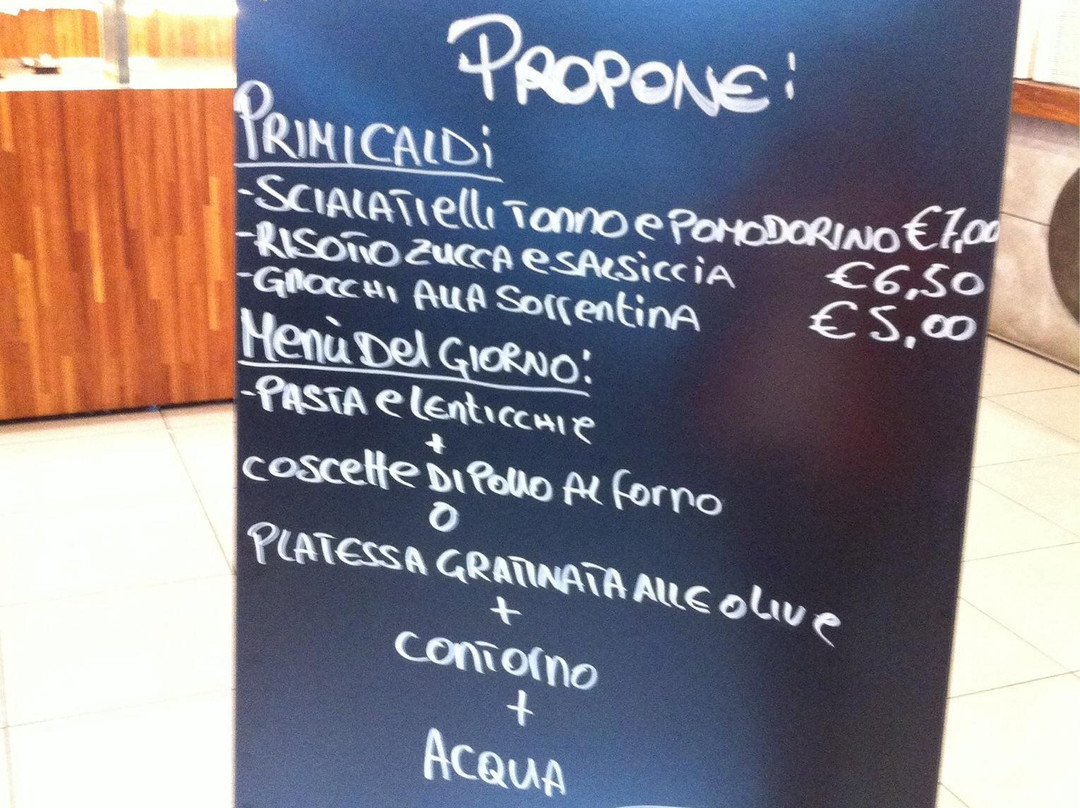 PROPONE:
PRIMI CALDI
-SCIALATIelli TONNO e POMODORINO €7,00
-RISOTTO ZUCCA e SALSICCIA €6,50
-GNOCCHI ALLA SorrentinA €5,00
Menù Del GIORNO:
-PASTA e LEnTICCHIe
+
coscette DI Pollo Al forno
O
PLATESSA GRATINATA ALLE OLIVe
+
CONTOrnO
+
ACQUA